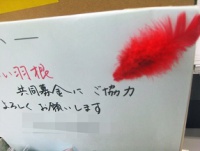 い羽根
共同募金に ご協力
よろしく お願いします